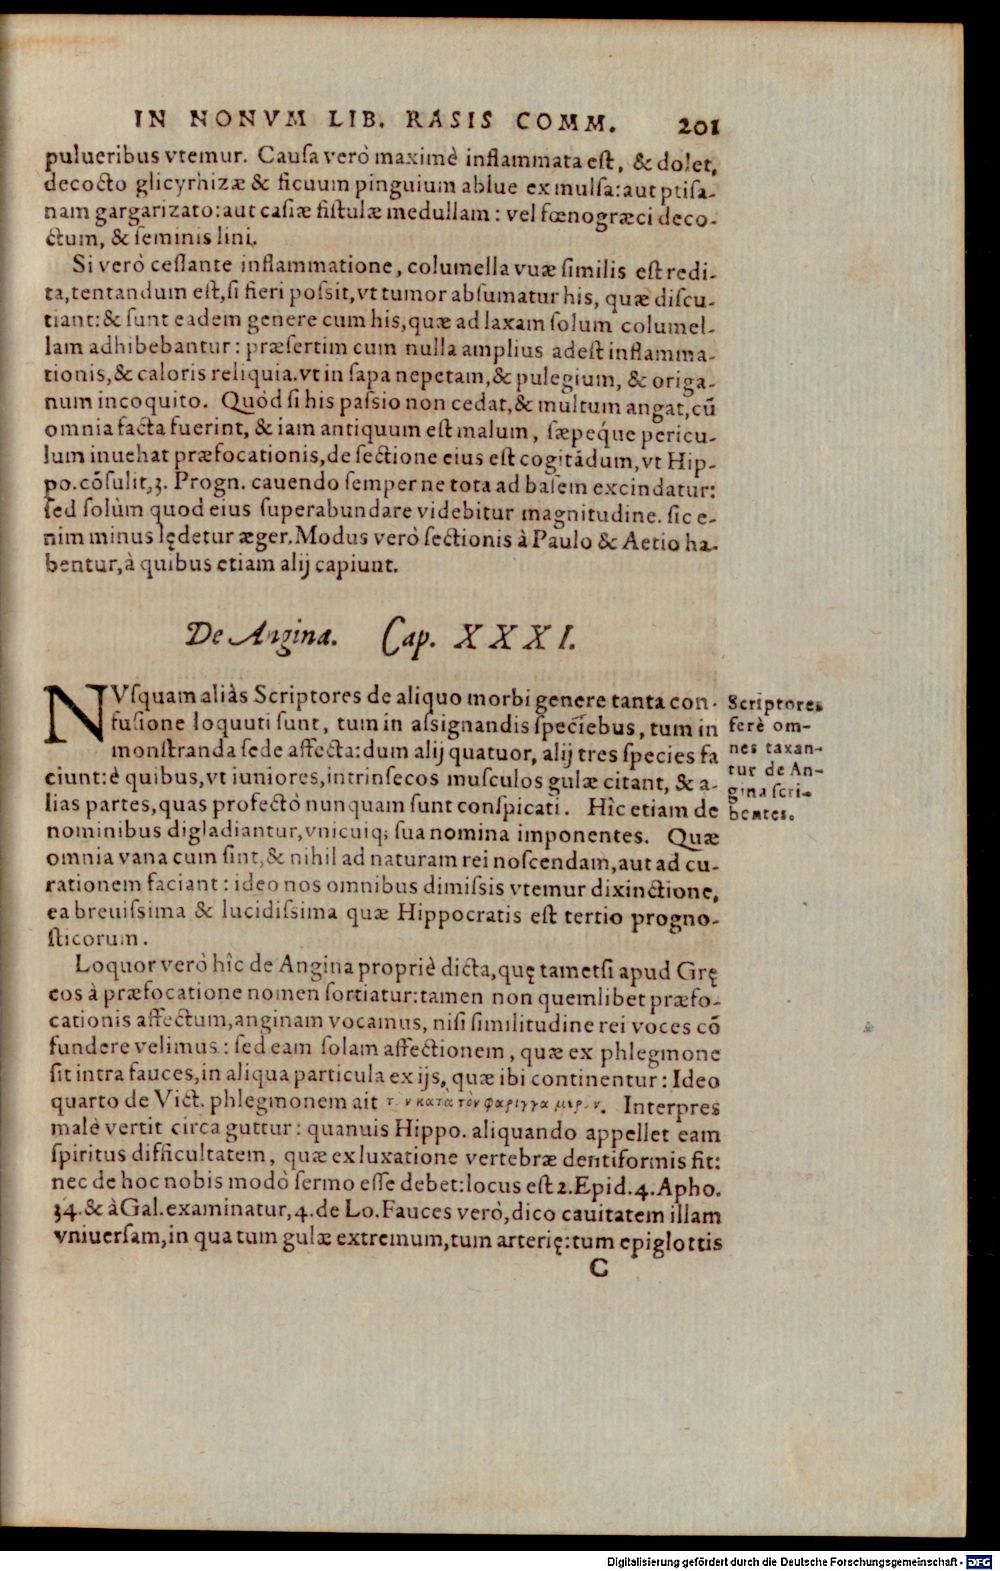 IN NONVM LIB. RASIS COMM. 201
pulueribus vtemur. Causa verò maximè inflammata est, & dolet,
decocto glicyrhizæ & ficuum pinguium ablue ex mulsa: aut ptisa-
nam gargarizato: aut casiæ fistulæ medullam: vel fœnogræci deco-
ctum, & seminis lini.
Si verò cessante inflammatione, columella vuæ similis est redi-
ta, tentandum est, si fieri possit, vt tumor absumatur his, quæ discu-
tiant: & sunt eadem genere cum his, quæ ad laxam solum columel-
lam adhibebantur: præsertim cum nulla amplius adest inflamma-
tionis, & caloris reliquia. vt in sapa nepetam, & pulegium, & origa-
num incoquito. Quòd si his passio non cedat, & multum angat, cũ
omnia facta fuerint, & iam antiquum est malum, sæpeq́ue pericu-
lum inuehat præfocationis, de sectione eius est cogitãdum, vt Hip-
po. cõsulit, 3. Progn. cauendo semper ne tota ad basem excindatur:
sed solùm quod eius superabundare videbitur magnitudine. sic e-
nim minus lędetur æger. Modus verò sectionis à Paulo & Aetio ha-
bentur, à quibus etiam alij capiunt.
De Angina. Cap. XXXI.
NVsquam aliàs Scriptores de aliquo morbi genere tanta con-
fusione loquuti sunt, tum in assignandis speciebus, tum in
monstranda sede affecta: dum alij quatuor, alij tres species fa
ciunt: è quibus, vt iuniores, intrinsecos musculos gulæ citant, & a-
lias partes, quas profectò nunquam sunt conspicati. Hîc etiam de
nominibus digladiantur, vnicuiq; sua nomina imponentes. Quæ
omnia vana cum sint, & nihil ad naturam rei noscendam, aut ad cu-
rationem faciant: ideo nos omnibus dimissis vtemur dixinctione,
ea breuissima & lucidissima quæ Hippocratis est tertio progno-
sticorum.
Scriptores
ferè om-
nes taxan-
tur de An-
gina scri-
bentes.
Loquor verò hîc de Angina propriè dicta, quę tametsi apud Grę
cos à præfocatione nomen sortiatur: tamen non quemlibet præfo-
cationis affectum, anginam vocamus, nisi similitudine rei voces cõ
fundere velimus: sed eam solam affectionem, quæ ex phlegmone
fit intra fauces, in aliqua particula ex ijs, quæ ibi continentur: Ideo
quarto de Vict. phlegmonem ait κατὰ τὸν φαριγγα. Interpres
malè vertit circa guttur: quanuis Hippo. aliquando appellet eam
spiritus difficultatem, quæ ex luxatione vertebræ dentiformis fit:
nec de hoc nobis modò sermo esse debet: locus est 2. Epid. 4. Apho.
34. & à Gal. examinatur, 4. de Lo. Fauces verò, dico cauitatem illam
vniuersam, in qua tum gulæ extremum, tum arterię: tum epiglottis
C
Digitalisierung gefördert durch die Deutsche Forschungsgemeinschaft - DFG